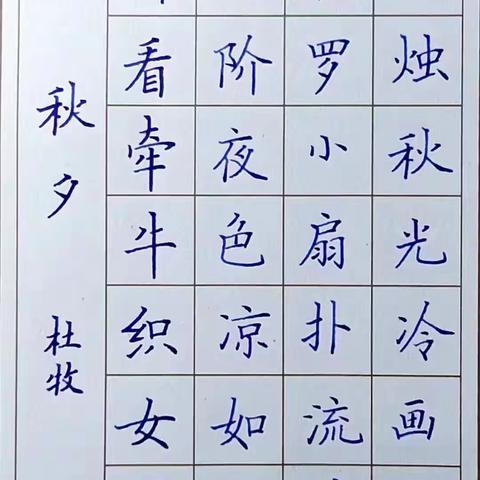 烛秋光冷画
罗小扇扑流
阶夜色凉如
看牵牛织女
秋夕 杜牧